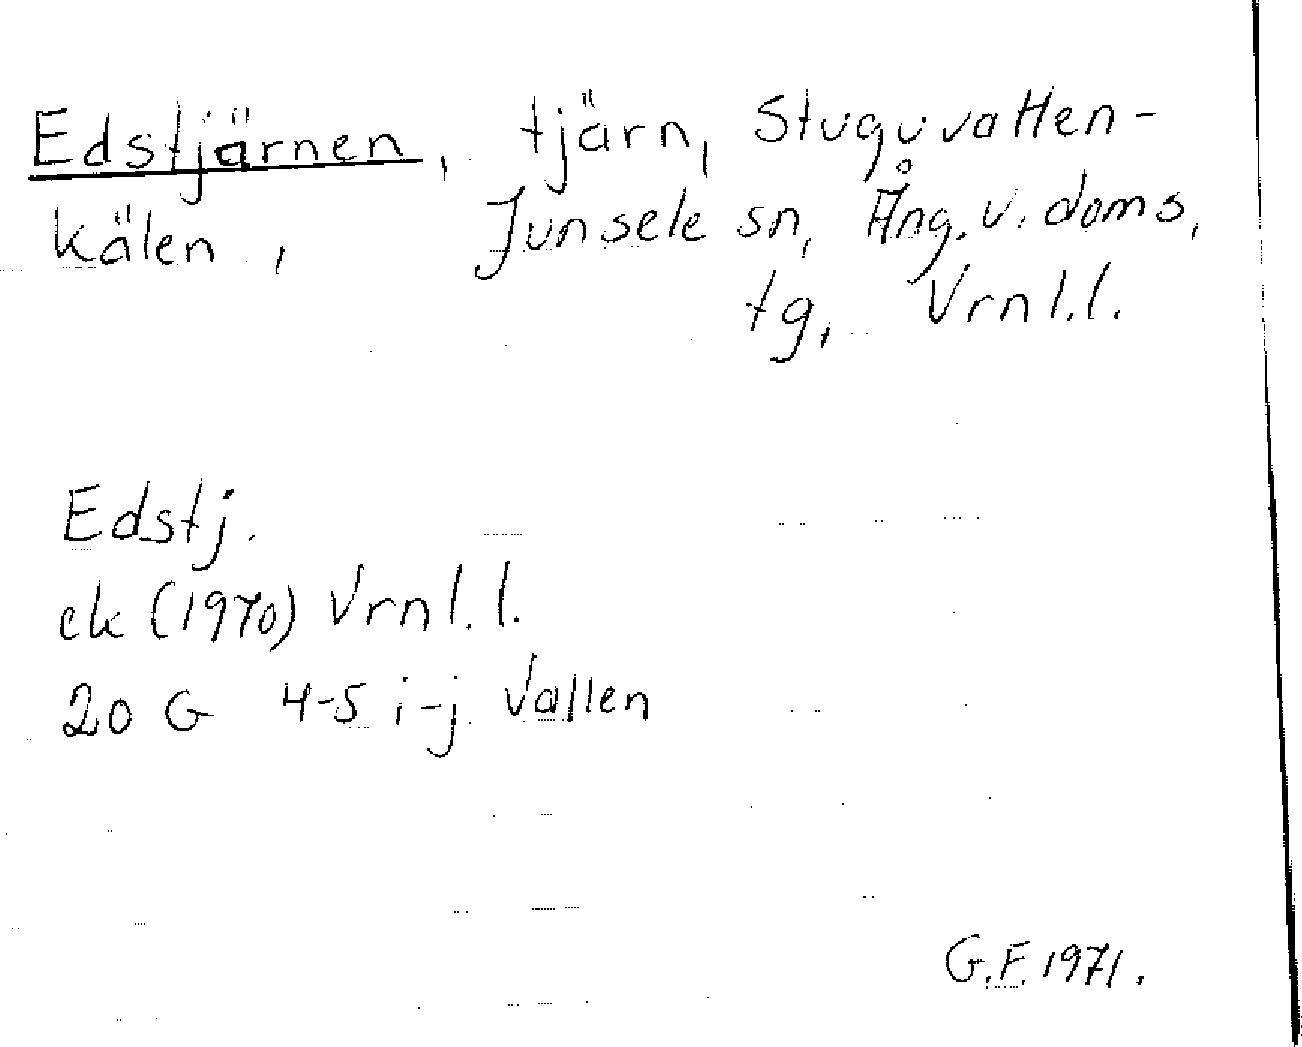 Edstjärnen, tjärn, Stuguvatten-
kälen, Junsele sn, Ång. v. doms,
tg, Vrnl.l.
Edstj.
ek (1970) Vrnl.l.
20 G 4-5 i-j Vallen
G.F. 1971.